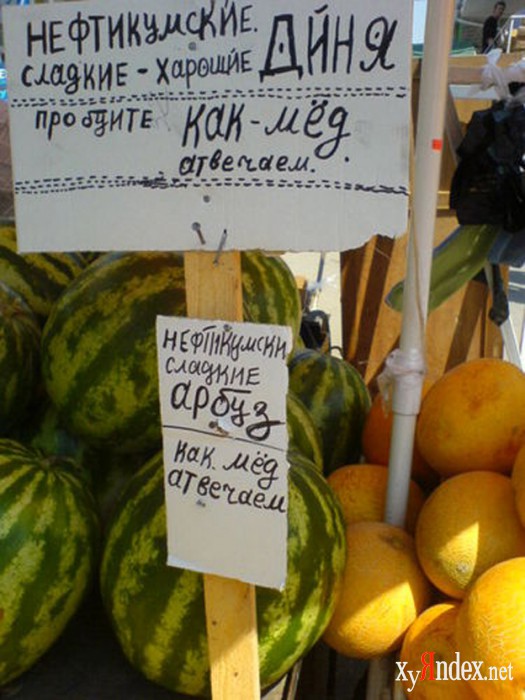 НЕФТИКУМСКИЕ.
СЛАДКИЕ - ХАРОЩИЕ ДЙНЯ
ПРОБУЙТЕ КАК - МЁД.
ОТВЕЧАЕМ.
НЕФТИКУМСКИ
СЛАДКИЕ
АРБУЗ
КАК. МЁД
АТВЕЧАЕМ
ХуЯndex.net